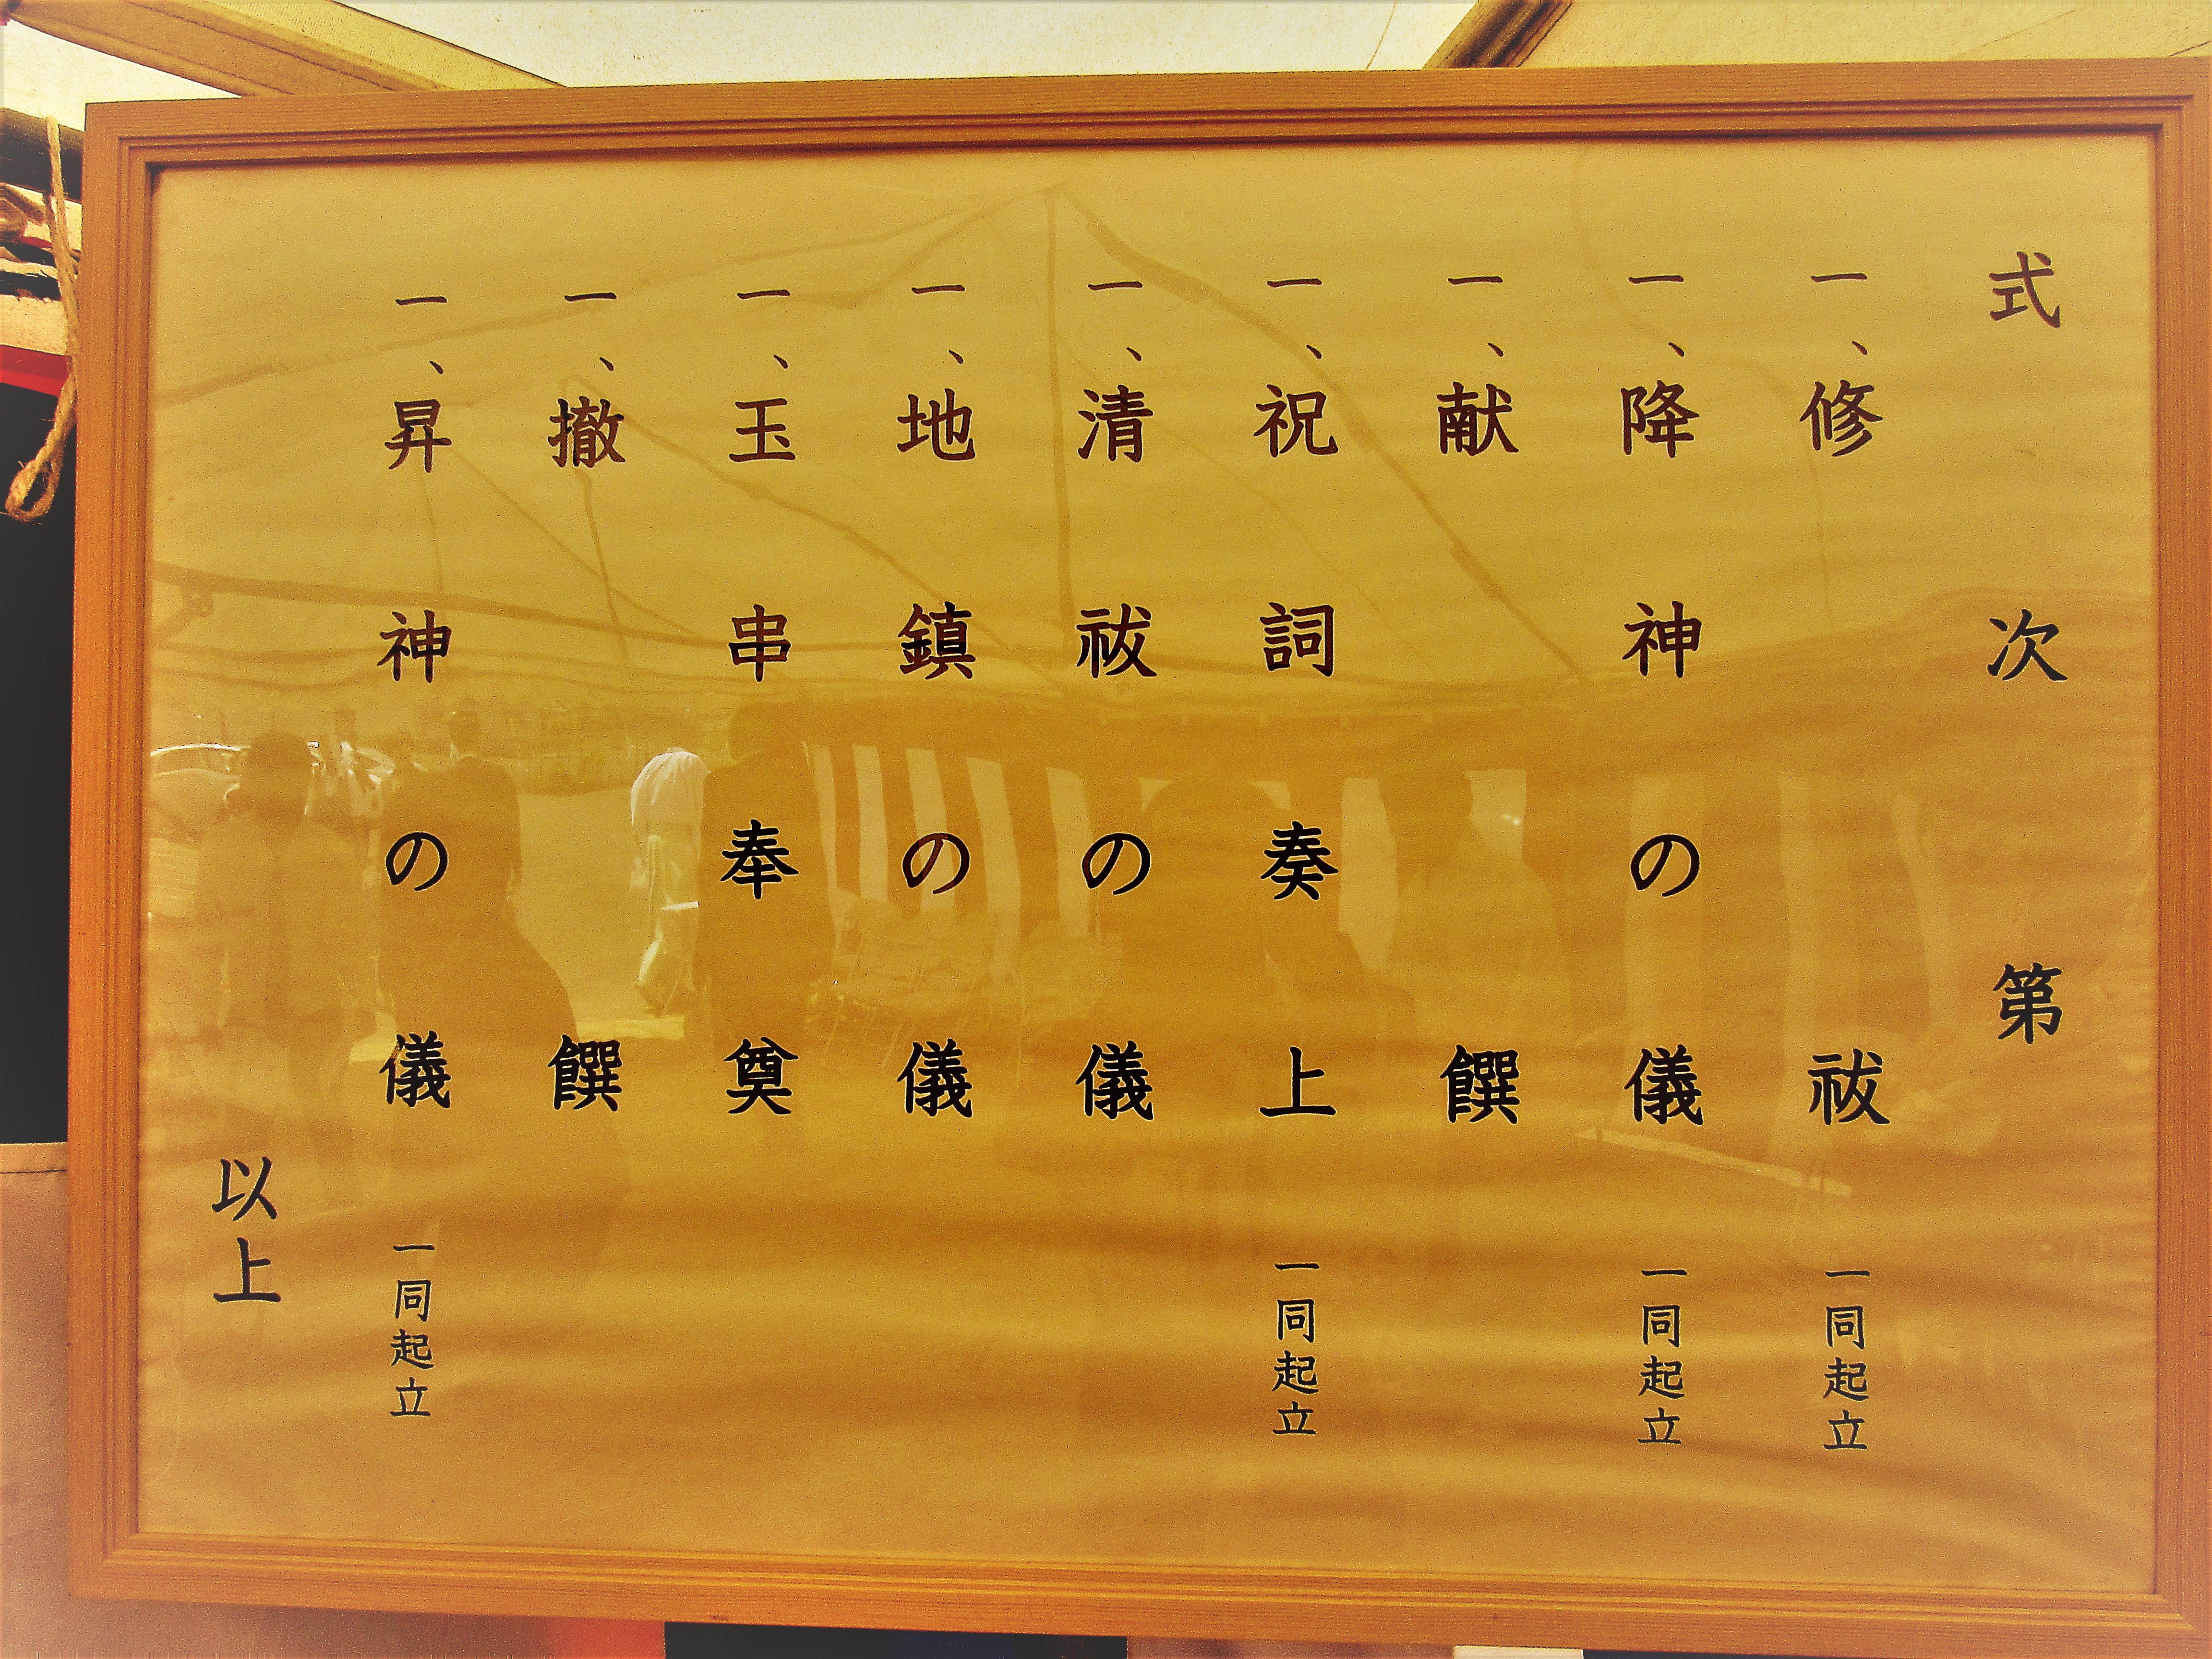 式次第
一、修祓 一同起立
一、降神の儀 一同起立
一、献饌
一、祝詞奏上 一同起立
一、清祓の儀
一、地鎮の儀
一、玉串奉奠
一、撤饌
一、昇神の儀 一同起立
以上